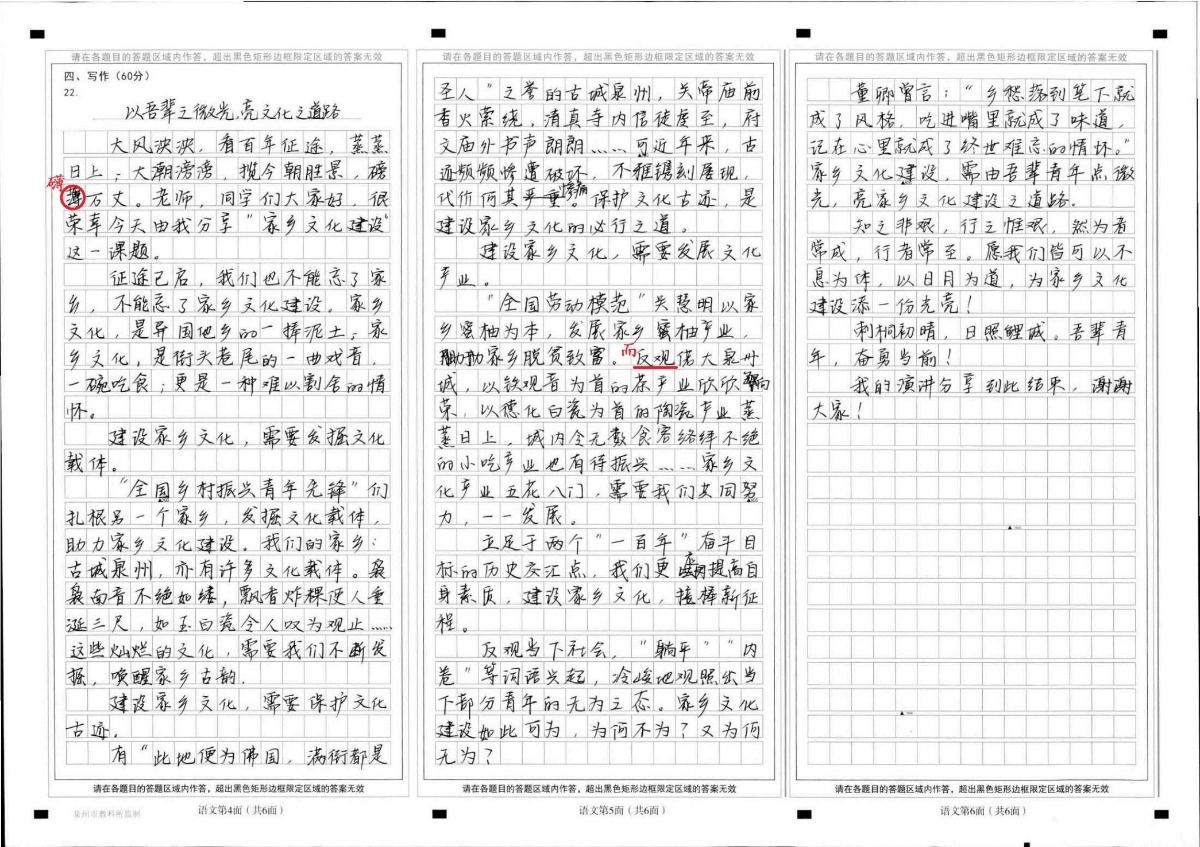 请在各题目的答题区域内作答，超出黑色矩形边框限定区域的答案无效
四、写作（60分）
22.
以吾辈之微光，亮文化之道路
大风泱泱，看百年征途，蒸蒸
日上；大潮滂滂，揽今朝胜景，磅
礴
薄万丈。老师，同学们大家好，很
荣幸今天由我分享"家乡文化建设"
这一课题。
征途已启，我们也不能忘了家
乡，不能忘了家乡文化建设。家乡
文化，是异国他乡的一捧泥土；家
乡文化，是街头巷尾的一曲戏音，
一碗吃食；更是一种难以割舍的情
怀。
建设家乡文化，需要发掘文化
载体。
"全国乡村振兴青年先锋"们
扎根另一个家乡，发掘文化载体，
助力家乡文化建设。我们的家乡：
古城泉州，亦有许多文化载体。袅
袅南音不绝如缕，飘香炸粿使人垂
涎三尺，如玉白瓷令人叹为观止……
这些灿烂的文化，需要我们不断发
掘，唤醒家乡古韵．
建设家乡文化，需要保护文化
古迹。
有"此地便为佛国，满街都是
请在各题目的答题区域内作答，超出黑色矩形边框限定区域的答案无效
泉州市教科所监制
语文第4面（共6面）
请在各题目的答题区域内作答，超出黑色矩形边框限定区域的答案无效
圣人"之誉的古城泉州，关帝庙前
香火萦绕，清真寺内信徒虔至，府
文庙外书声朗朗……可近年来，古
迹频频惨遭破坏，不雅镌刻展现，
代价何其惨痛。保护文化古迹，是
建设家乡文化的必行之道。
建设家乡文化，需要发展文化
产业。
"全国劳动模范"失慧明以家
乡蜜柚为本，发展家乡蜜柚产业，
助力家乡脱贫致富。而反观偌大泉州
城，以铁观音为首的茶产业欣欣向
荣，以德化白瓷为首的陶瓷产业蒸
蒸日上，城内令无数食客络绎不绝
的小吃产业也有待振兴……家乡文
化产业五花八门，需要我们共同努
力，一一发展。
立足于两个"一百年"奋斗目
标的历史交汇点，我们更应提高自
身素质，建设家乡文化，接棒新征
程。
反观当下社会，"躺平""内
卷"等词语兴起，冷峻地观照出当
下部分青年的无为之态。家乡文化
建设如此可为，为何不为？又为何
无为？
请在各题目的答题区域内作答，超出黑色矩形边框限定区域的答案无效
语文第5面（共6面）
请在各题目的答题区域内作答，超出黑色矩形边框限定区域的答案无效
董卿曾言："乡愁落到笔下就
成了风格，吃进嘴里就成了味道，
记在心里就成了终世难忘的情怀。"
家乡文化建设，需由吾辈青年点微
光，亮家乡文化建设之道路．
知之非艰，行之惟艰，然为者
常成，行者常至。愿我们皆可以不
息为体，以日月为道，为家乡文化
建设添一份光亮！
刺桐初晴，日照鲤城。吾辈青
年，奋勇当前！
我的演讲分享到此结束，谢谢
大家！
请在各题目的答题区域内作答，超出黑色矩形边框限定区域的答案无效
语文第6面（共6面）